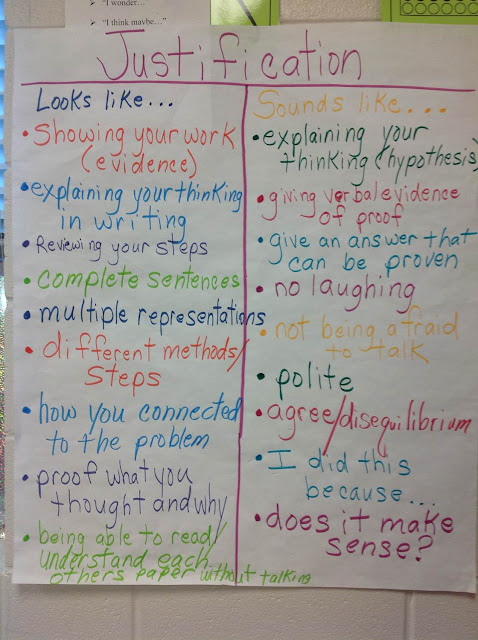 ➤ "I wonder…"
➤ "I think maybe…"
Justification
Looks like...
• Showing your work
(evidence)
• explaining your thinking
in writing
• Reviewing your steps
• complete sentences
• multiple representations
• different methods/
steps
• how you connected
to the problem
• proof what you
thought and why
• being able to read/
understand each
others paper without talking
Sounds like...
• explaining your
thinking (hypothesis)
• giving verbal evidence
of proof
• give an answer that
can be proven
• no laughing
• not being afraid
to talk
• polite
• agree/disequilibrium
• I did this
because...
• does it make
sense?